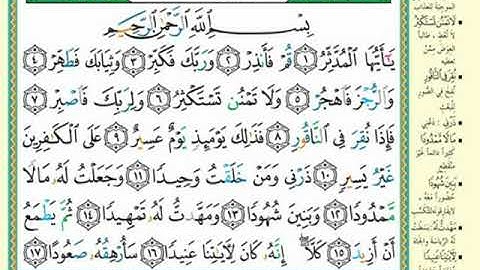 بِسْمِ اللَّهِ الرَّحْمَٰنِ الرَّحِيمِ
يَا أَيُّهَا الْمُدَّثِّرُ ١ قُمْ فَأَنذِرْ ٢ وَرَبَّكَ فَكَبِّرْ ٣ وَثِيَابَكَ فَطَهِّرْ ٤
وَالرُّجْزَ فَاهْجُرْ ٥ وَلَا تَمْنُن تَسْتَكْثِرُ ٦ وَلِرَبِّكَ فَاصْبِرْ ٧
فَإِذَا نُقِرَ فِي النَّاقُورِ ٨ فَذَٰلِكَ يَوْمَئِذٍ يَوْمٌ عَسِيرٌ ٩ عَلَى الْكَافِرِينَ
غَيْرُ يَسِيرٍ ١٠ ذَرْنِي وَمَنْ خَلَقْتُ وَحِيدًا ١١ وَجَعَلْتُ لَهُ مَالًا
مَّمْدُودًا ١٢ وَبَنِينَ شُهُودًا ١٣ وَمَهَّدتُّ لَهُ تَمْهِيدًا ١٤ ثُمَّ يَطْمَعُ
أَنْ أَزِيدَ ١٥ كَلَّا إِنَّهُ كَانَ لِآيَاتِنَا عَنِيدًا ١٦ سَأُرْهِقُهُ صَعُودًا ١٧
لَا تَمْنُن تَسْتَكْثِرُ
نُقِرَ فِي النَّاقُورِ
ذَرْنِي
مَالًا مَمْدُودًا
بَنِينَ شُهُودًا